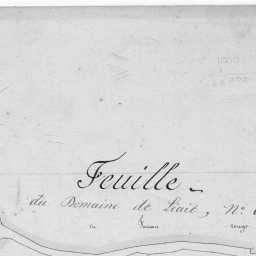 Feuille
du Domaine de Liait, N°
rouge